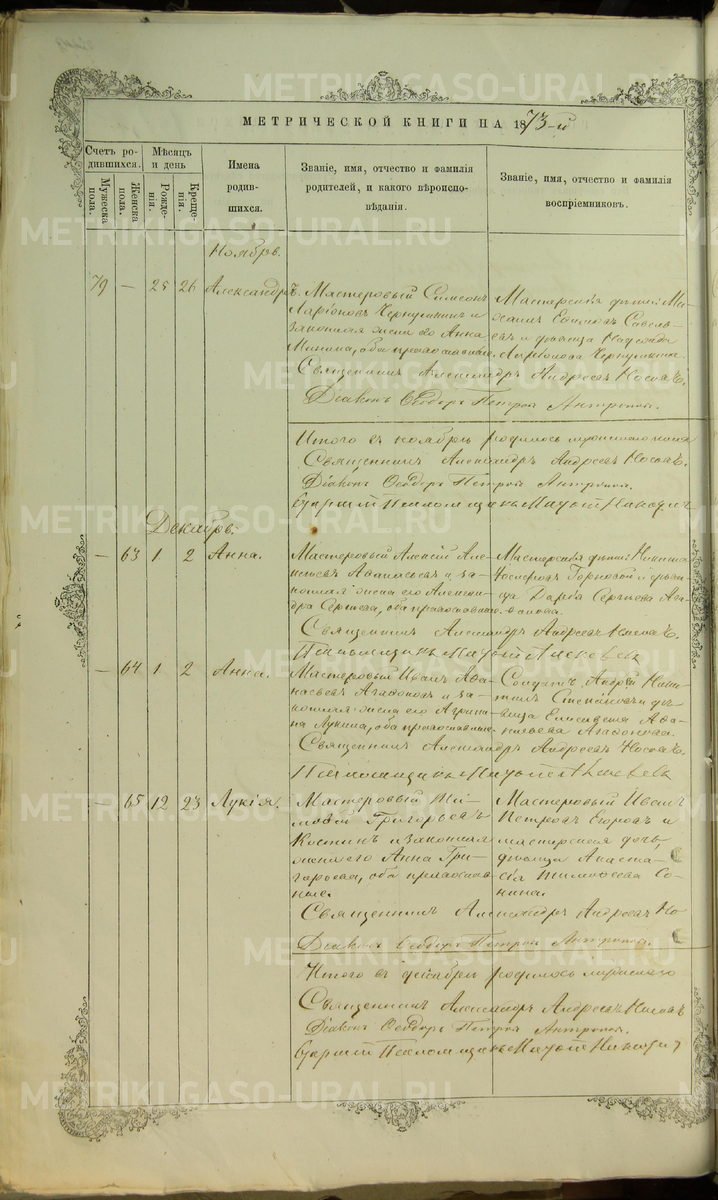 METRIKI.GASO-URAL.RU
МЕТРИЧЕСКОЙ КНИГИ НА 1873-й
Счетъ ро-
дившихся.
Мужеска
пола.
Женска
пола.
Мѣсяцъ
и день
Рожде-
нія.
Креще-
нія.
Имена
родив-
шихся.
Званіе, имя, отчество и фамилія
родителей, и какого вѣроиспо-
вѣданія.
Званіе, имя, отчество и фамилія
воспріемниковъ.
Ноябрь.
79 — 25 26 Александръ.
Мастеровый Симеонъ
Ларіоновъ и
законная жена его Анна
Минина, оба православные.
Мастерскія дѣти: Ми-
хаилъ Савель-
евъ и дѣвица Надежда
Ларіонова
Священникъ Александръ Андреевъ Носовъ.
Діаконъ Ѳеодоръ Петровъ Антроповъ.
Итого въ ноябрѣ родилось мужескаго пола
Священникъ Александръ Андреевъ Носовъ.
Діаконъ Ѳеодоръ Петровъ Антроповъ.
Старшій Псаломщикъ
Декабрь.
— 63 1 2 Анна.
Мастеровый Алексій Але-
ксѣевъ и за-
конная жена его Алексан-
дра Сергѣева, оба православные.
Мастерскія дѣти: Никита
и дѣви-
ца Дарія Сергѣева
Священникъ Александръ Андреевъ Носовъ.
Псаломщикъ
— 64 1 2 Анна.
Мастеровый Иванъ Аѳа-
насьевъ Агафоновъ и за-
конная жена его Агрипи-
на Лукина, оба православные.
Солдатъ Андрей Ники-
тинъ Степановъ и дѣ-
вица Елисавета Аѳа-
насьева Агафонова.
Священникъ Александръ Андреевъ Носовъ.
Псаломщикъ
— 65 12 23 Лукія.
Мастеровый Ти-
моѳей Григорьевъ
Костинъ и законная
жена его Анна Гри-
горьева, оба православ-
ные.
Мастеровый Иванъ
Петровъ Егоровъ и
мастерская дочь,
дѣвица Анаста-
сія Тимоѳеева Со-
нина.
Священникъ Александръ Андреевъ Но
Діаконъ Ѳеодоръ Петровъ Антроповъ.
Итого въ декабрѣ родилось мужескаго
Священникъ Александръ Андреевъ Носовъ
Діаконъ Ѳеодоръ Петровъ Антроповъ.
Старшій Псаломщикъ